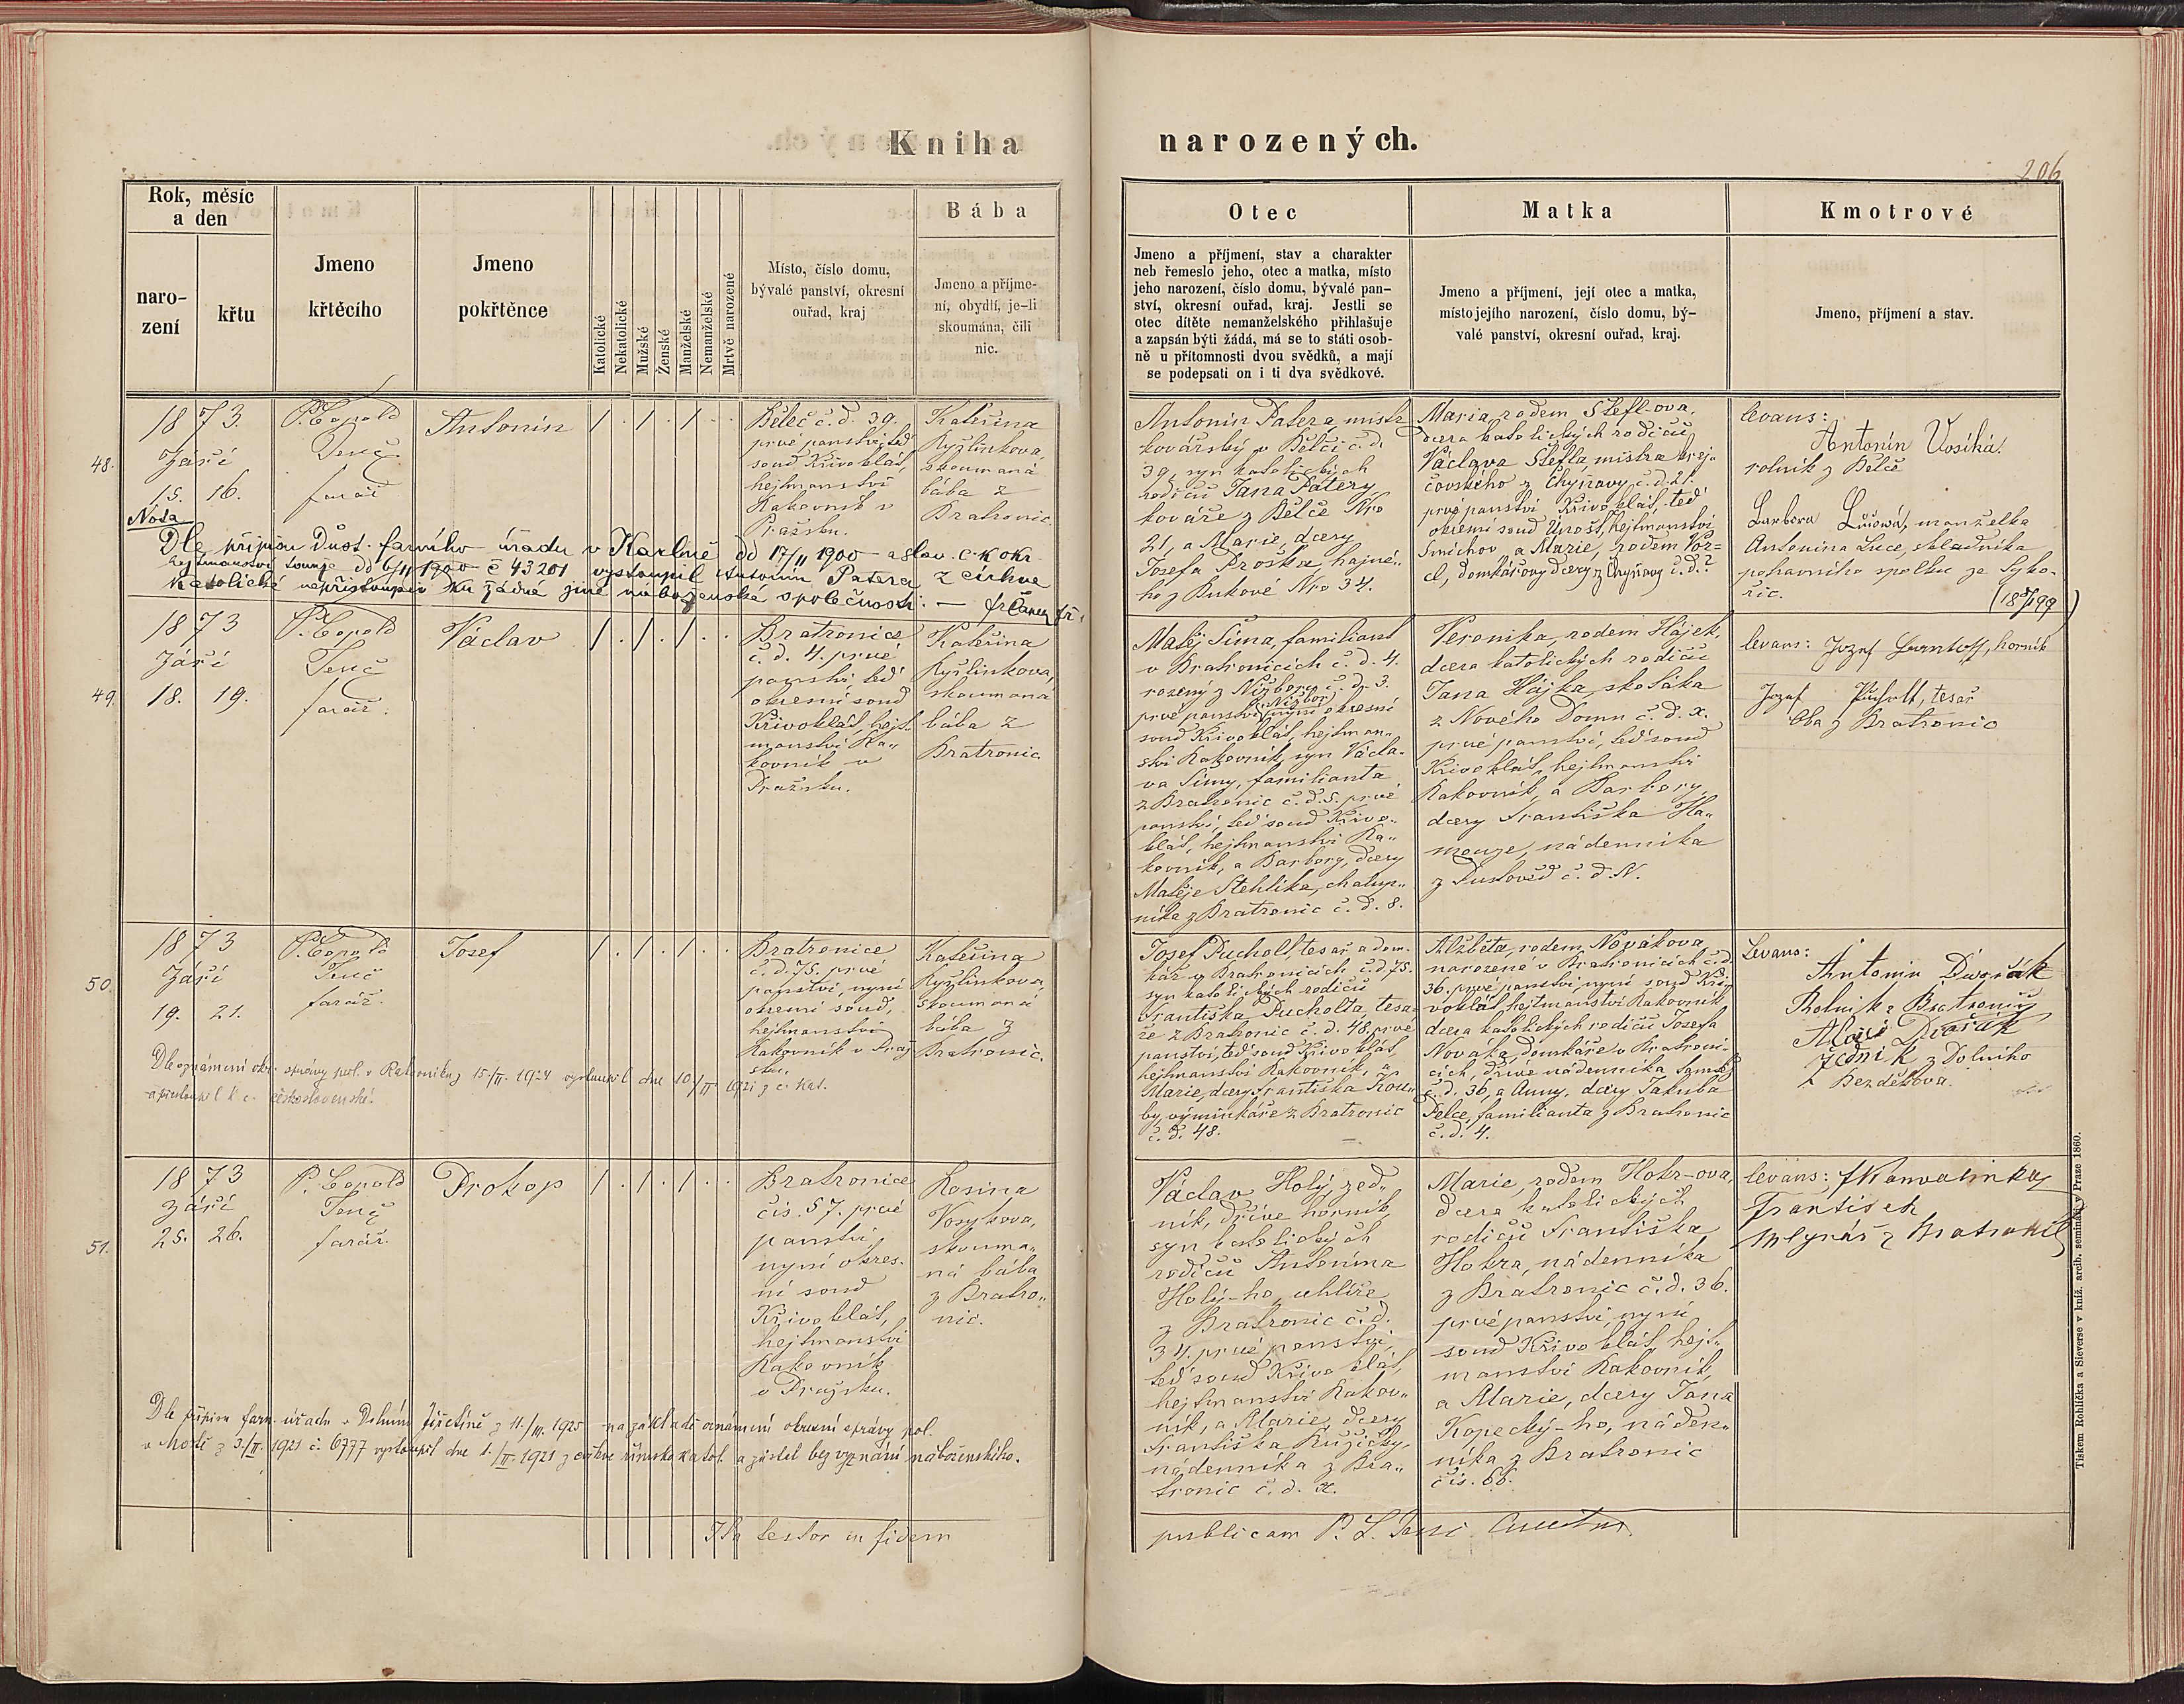 Kniha
narozených.
206
Rok, měsíc
a den
naro-
zení
křtu
Jmeno
křtěcího
Jmeno
pokřtěnce
Katolické
Nekatolické
Mužské
Ženské
Manželské
Nemanželské
Mrtvě narozené
Místo, číslo domu,
bývalé panství, okresní
ouřad, kraj
Bába
Jmeno a příjme-
ní, obydlí, je-li
skoumána, čili
nic.
Otec
Jmeno a příjmení, stav a charakter
neb řemeslo jeho, otec a matka, místo
jeho narození, číslo domu, bývalé pan-
ství, okresní ouřad, kraj. Jestli se
otec dítěte nemanželského přihlašuje
a zapsán býti žádá, má se to státi osob-
ně u přítomnosti dvou svědků, a mají
se podepsati on i ti dva svědkové.
Matka
Jmeno a příjmení, její otec a matka,
místo jejího narození, číslo domu, bý-
valé panství, okresní ouřad, kraj.
Kmotrové
Jmeno, příjmení a stav.
48.
1873.
Září
15. 16.
P. Leopold
Tenč
farář
Antonín
Běleč č. d. 39.
prvé panství, teď
soud Křivoklát,
hejtmanství
Rakovník v
Pražsku.
Kateřina
Kyžlinkova,
skoumaná
bába z
Bratronic.
Antonín Patera, mistr
kovářský v Bělči č. d.
39, syn katolických
rodičů Jana Patery,
kováře z Bělče Nro
21, a Marie, dcery
Josefa Proška, hajné-
ho z Bukové Nro 34.
Maria, rodem Štefl-ova,
dcera katolických rodičů
Václava Štefla, mistra krej-
čovského z Chyňavy č. d. 21.
prvé panství Křivoklát, teď
okresní soud Unošť, hejtmanství
Smíchov a Marie, rodem Vor-
el, domkářovy dcery z Chyňavy č. d. ?
levans:
Antonín Vosika.
rolník z Bělče
Barbora Lucová, manželka
Antonína Luce, skladníka
potravního spolku ze Syko-
řic.
(18 5/1 99)
Nota
Dle přípisu Důst. farního úřadu v Karlíně dd 17/11 1900 a slav. c. k. okr.
hejtmanství Louny dd 6/11 1900 č 43201 vystoupil Antonín Patera z církve
katolické nepřistoupiv ku žádné jiné náboženské společnosti. —
49.
1873
Září
18. 19.
P. Leopold
Tenč
farář.
Václav
Bratronice
č. d. 4. prvé
panství teď
okresní soud
Křivoklát, hejt-
manství Ra-
kovník v
Pražsku.
Kateřina
Kyžlinkova,
skoumaná
bába z
Bratronic
Matěj Šíma, familiant
v Bratronicích č. d. 4.
rozený z Nižbora č. d. 3.
prvé panství Nižbor, nyní okresní
soud Křivoklát, hejtman-
ství Rakovník, syn Václa-
va Šímy, familianta
z Bratronic č. d. 5. prvé
panství, teď soud Křivo-
klát, hejtmanství Ra-
kovník, a Barbory, dcery
Matěje Stehlíka, chalup-
níka z Bratronic č. d. 8.
Veronika rodem Hájek,
dcera katolických rodičů
Jana Hájka, skotáka
z Nového Domu č. d. x.
prvé panství, teď soud
Křivoklát, hejtmanství
Rakovník, a Barbory,
dcery Františka Ha-
mouze, nádenníka
z Pustověd č. d. N.
levans: Jozef Bernkoff, horník
Jozef Pucholt, tesař
Oba z Bratronic
50.
1873
Září
19. 21.
P. Leopold
Tenč
farář.
Josef
Bratronice
č. d. 75. prvé
panství, nyní
okresní soud,
hejtmanství
Rakovník v Praž
sku.
Kateřina
Kyžlinkova,
skoumaná
bába z
Bratronic.
Josef Pucholt, tesař a dom-
kář v Bratronicích č. d. 75.
syn katolických rodičů
Františka Pucholta, tesa-
ře z Bratronic č. d. 48. prvé
panství, teď soud Křivoklát,
hejtmanství Rakovník, a
Marie, dcery Františka Kou-
by, výminkáře z Bratronic
č. d. 48.
Alžběta, rodem Nováková
narozená v Bratronicích č. d.
36. prvé panství, nyní soud Kři-
voklát, hejtmanství Rakovník,
dcera katolických rodičů Josefa
Nováka, domkáře v Bratroni-
cích, dříve nádenníka
č. d. 36, a Anny, dcery Jakuba
Pelce, familianta z Bratronic
č. d. 4.
Levans:
Antonín Dvořák
Rolník z Bratronic
Alois Dvořák
zedník z Dolního
Bezděkova.
Dle oznámení okr. správy pol. v Rakovníku z 15/II. 1924 vystoupil dne 10/II 1921 z c. kat.
a přistoupil k c. československé.
51.
1873
Září
25. 26.
P. Leopold
Tenč
farář.
Prokop
Bratronice
čis. 57. prvé
panství,
nyní okres-
ní soud
Křivoklát,
hejtmanství
Rakovník
v Pražsku.
Rosina
Vosykova,
skouma-
ná bába
z Bratro-
nic.
Václav Holý, zed-
ník, dříve horník,
syn katolických
rodičů Antonína
Holý-ho, uhlíře
z Bratronic č. d.
34. prvé panství,
teď soud Křivoklát,
hejtmanství Rakov-
ník, a Marie, dcery
Františka Růžičky,
nádenníka z Bra-
tronic č. d. x.
Marie, rodem Hokr-ova,
dcera katolických
rodičů Františka
Hokra, nádenníka
z Bratronic č. d. 36.
prvé panství, nyní
soud Křivoklát, hejt-
manství Rakovník,
a Marie, dcery Jana
Kopecký-ho, náden-
níka z Bratronic
čis. 66.
levans: Konvalinka
František
mlynář z Bratronic
Dle přípisu farn. úřadu v Dolním Jiřetíně z 11./III. 1925 na základě oznámení okresní správy pol.
v Mostě z 3./II. 1921 č. 6777 vystoupil dne 1./II. 1921 z církve římsko katol. a zůstal bez vyznání náboženského.
Ita testor in fidem
publicam P. L. Tenč
Tiskem Rohlíčka a Sieverse v kníž. arcib. semináři v Praze 1860.